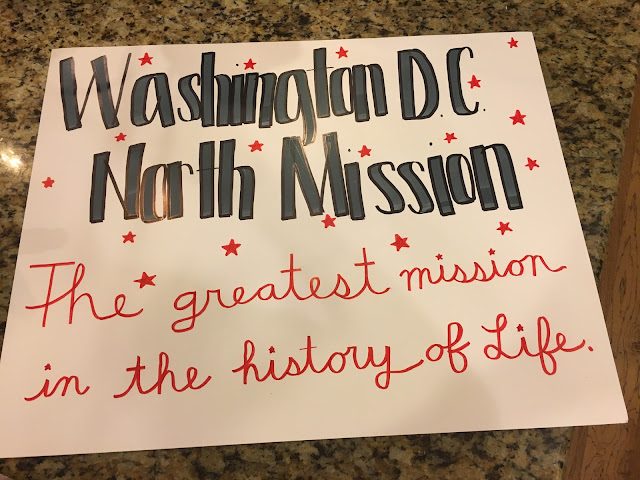 Washington D.C.
North Mission
The greatest mission
in the history of Life.